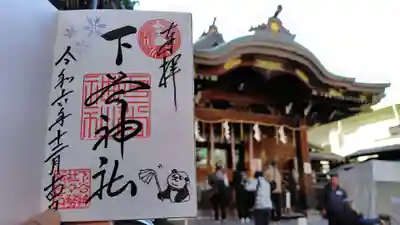 奉拝
下谷神社
令和六年十二月